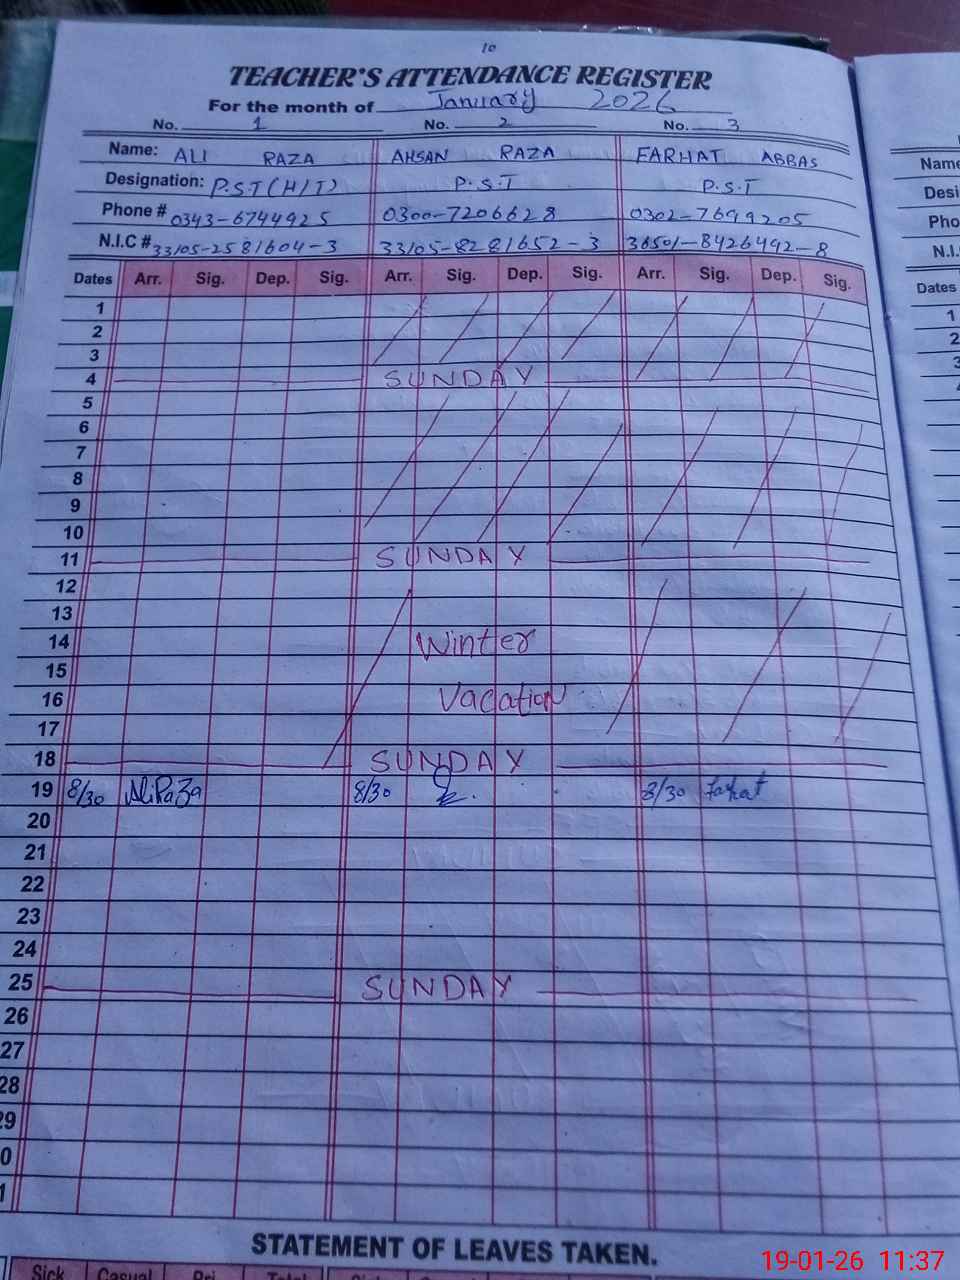 10
TEACHER'S ATTENDANCE REGISTER
For the month of January 2026
No. 1 No. 2 No. 3
Name: ALI RAZA AHSAN RAZA FARHAT ABBAS Name
Designation: P.S.T(H/T) P.S.T P.S.T Desi
Phone # 0343-6744925 0300-7206628 0302-7699205 Pho
N.I.C # 33105-2581604-3 33105-8281652-3 36501-8426492-8 N.I.
Dates Arr. Sig. Dep. Sig. Arr. Sig. Dep. Sig. Arr. Sig. Dep. Sig. Dates
1 1
2 2
3 3
4 SUNDAY
5
6
7
8
9
10
11 SUNDAY
12
13
14 Winter
15
16 Vacation
17
18 SUNDAY
19 8/30 Ali Raza 8/30 8/30 Farhat
20
21
22
23
24
25 SUNDAY
26
27
28
29
0
1
STATEMENT OF LEAVES TAKEN.
Sick Casual Pri Total
19-01-26 11:37